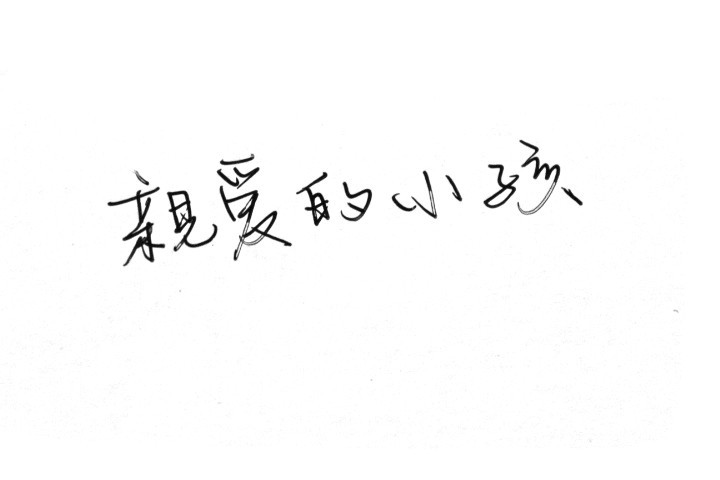 親愛的小孩